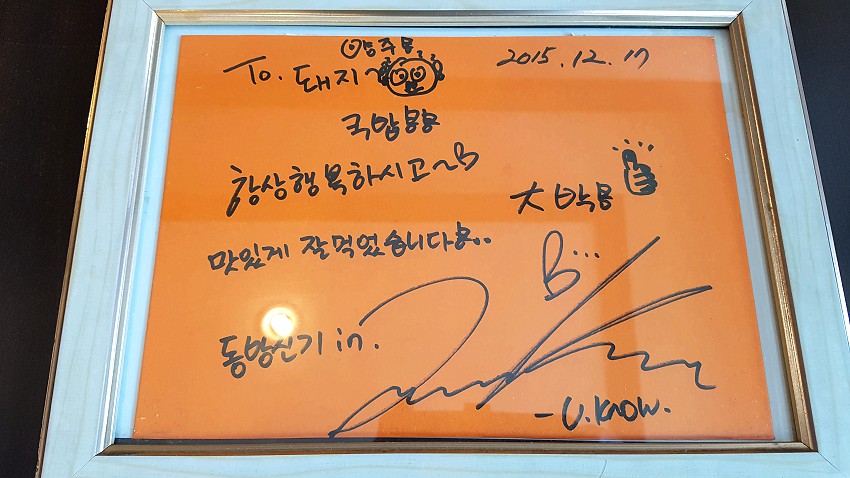 양주용
To. 돼지~ 2015.12.17
국밥용용
항상행복하시고~
大박용
맛있게 잘먹었습니다용..
B...
동방신기 in.
-U.Know.